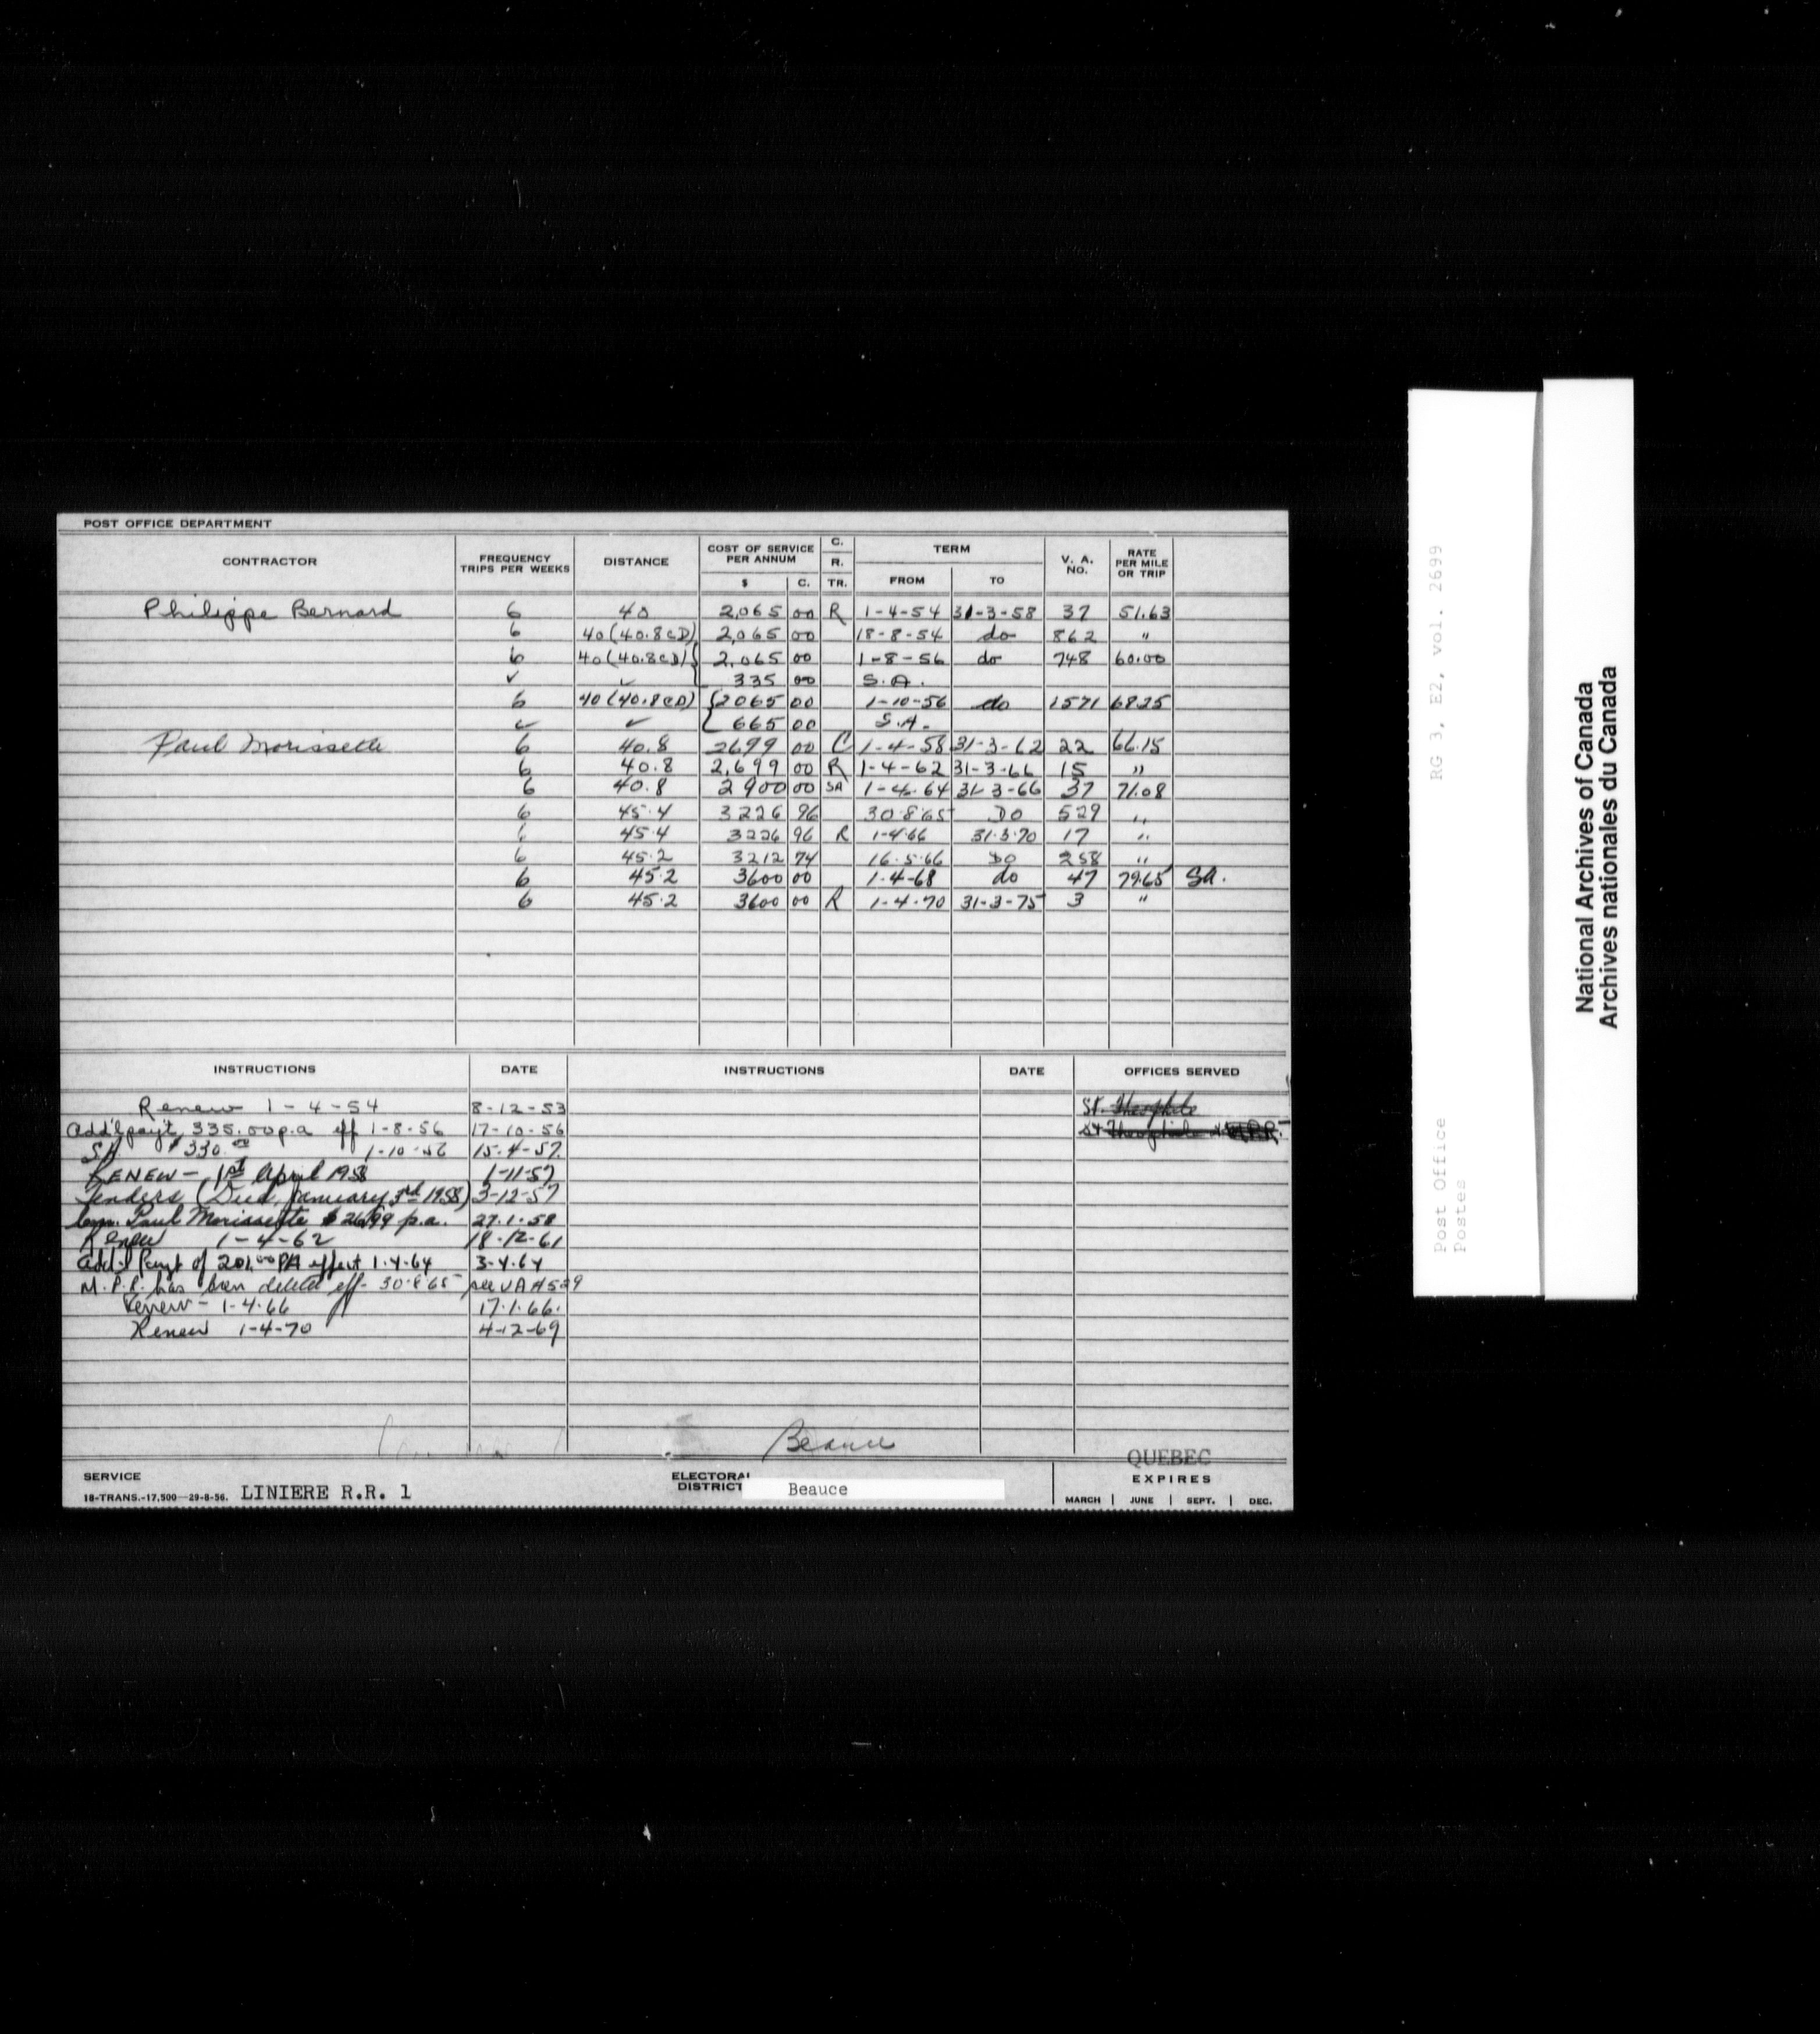 POST OFFICE DEPARTMENT
CONTRACTOR FREQUENCY TRIPS PER WEEKS DISTANCE COST OF SERVICE PER ANNUM $ C. C. R. TR. TERM FROM TO V. A. NO. RATE PER MILE OR TRIP
Philippe Bernard 6 40 2,065 00 R 1-4-54 31-3-58 37 51.63
6 40 (40.8 CD) 2,065 00 18-8-54 do 862 "
6 40 (40.8 CD) { 2,065 00 1-8-56 do 748 60.00
✓ ✓ 335 00 S.A.
6 40 (40.8 CD) { 2065 00 1-10-56 do 1571 68.25
✓ ✓ 665 00 S.A.
Paul Morissette 6 40.8 2699 00 C 1-4-58 31-3-62 22 66.15
6 40.8 2,699 00 R 1-4-62 31-3-66 15 "
6 40.8 2900 00 SA 1-4-64 31-3-66 37 71.08
6 45.4 3226 96 30.8.65 DO 529 "
6 45.4 3226 96 R 1-4.66 31.3.70 17 "
6 45.2 3212 74 16.5.66 DO 258 "
6 45.2 3600 00 1-4-68 do 47 79.65 SA.
6 45.2 3600 00 R 1-4-70 31-3-75 3 "
INSTRUCTIONS DATE INSTRUCTIONS DATE OFFICES SERVED
Renew 1-4-54 8-12-53 St. Theophile
Add'l pay't 335.00 p.a eff 1-8-56 17-10-56 St Theophile
SA $330.00 1-10-56 15-4-57
RENEW - 1st April 1958 1-11-57
Tenders (Due January 3rd 1958) 3-12-57
Paul Morissette $2699 p.a. 27.1.58
Renew 1-4-62 18-12-61
Add'l Paymt of 201.00 PA effect 1.4.64 3-4-64
M.P.R. has been deleted eff. 30.8.65 see VA #529
Renew - 1-4.66 17.1.66.
Renew 1-4-70 4-12-69
Beauce
QUEBEC
SERVICE LINIERE R.R. 1
18-TRANS.-17,500-29-8-56.
ELECTORAL DISTRICT Beauce
EXPIRES
MARCH | JUNE | SEPT. | DEC.
Post Office RG 3, E2, vol. 2699
Postes
National Archives of Canada
Archives nationales du Canada